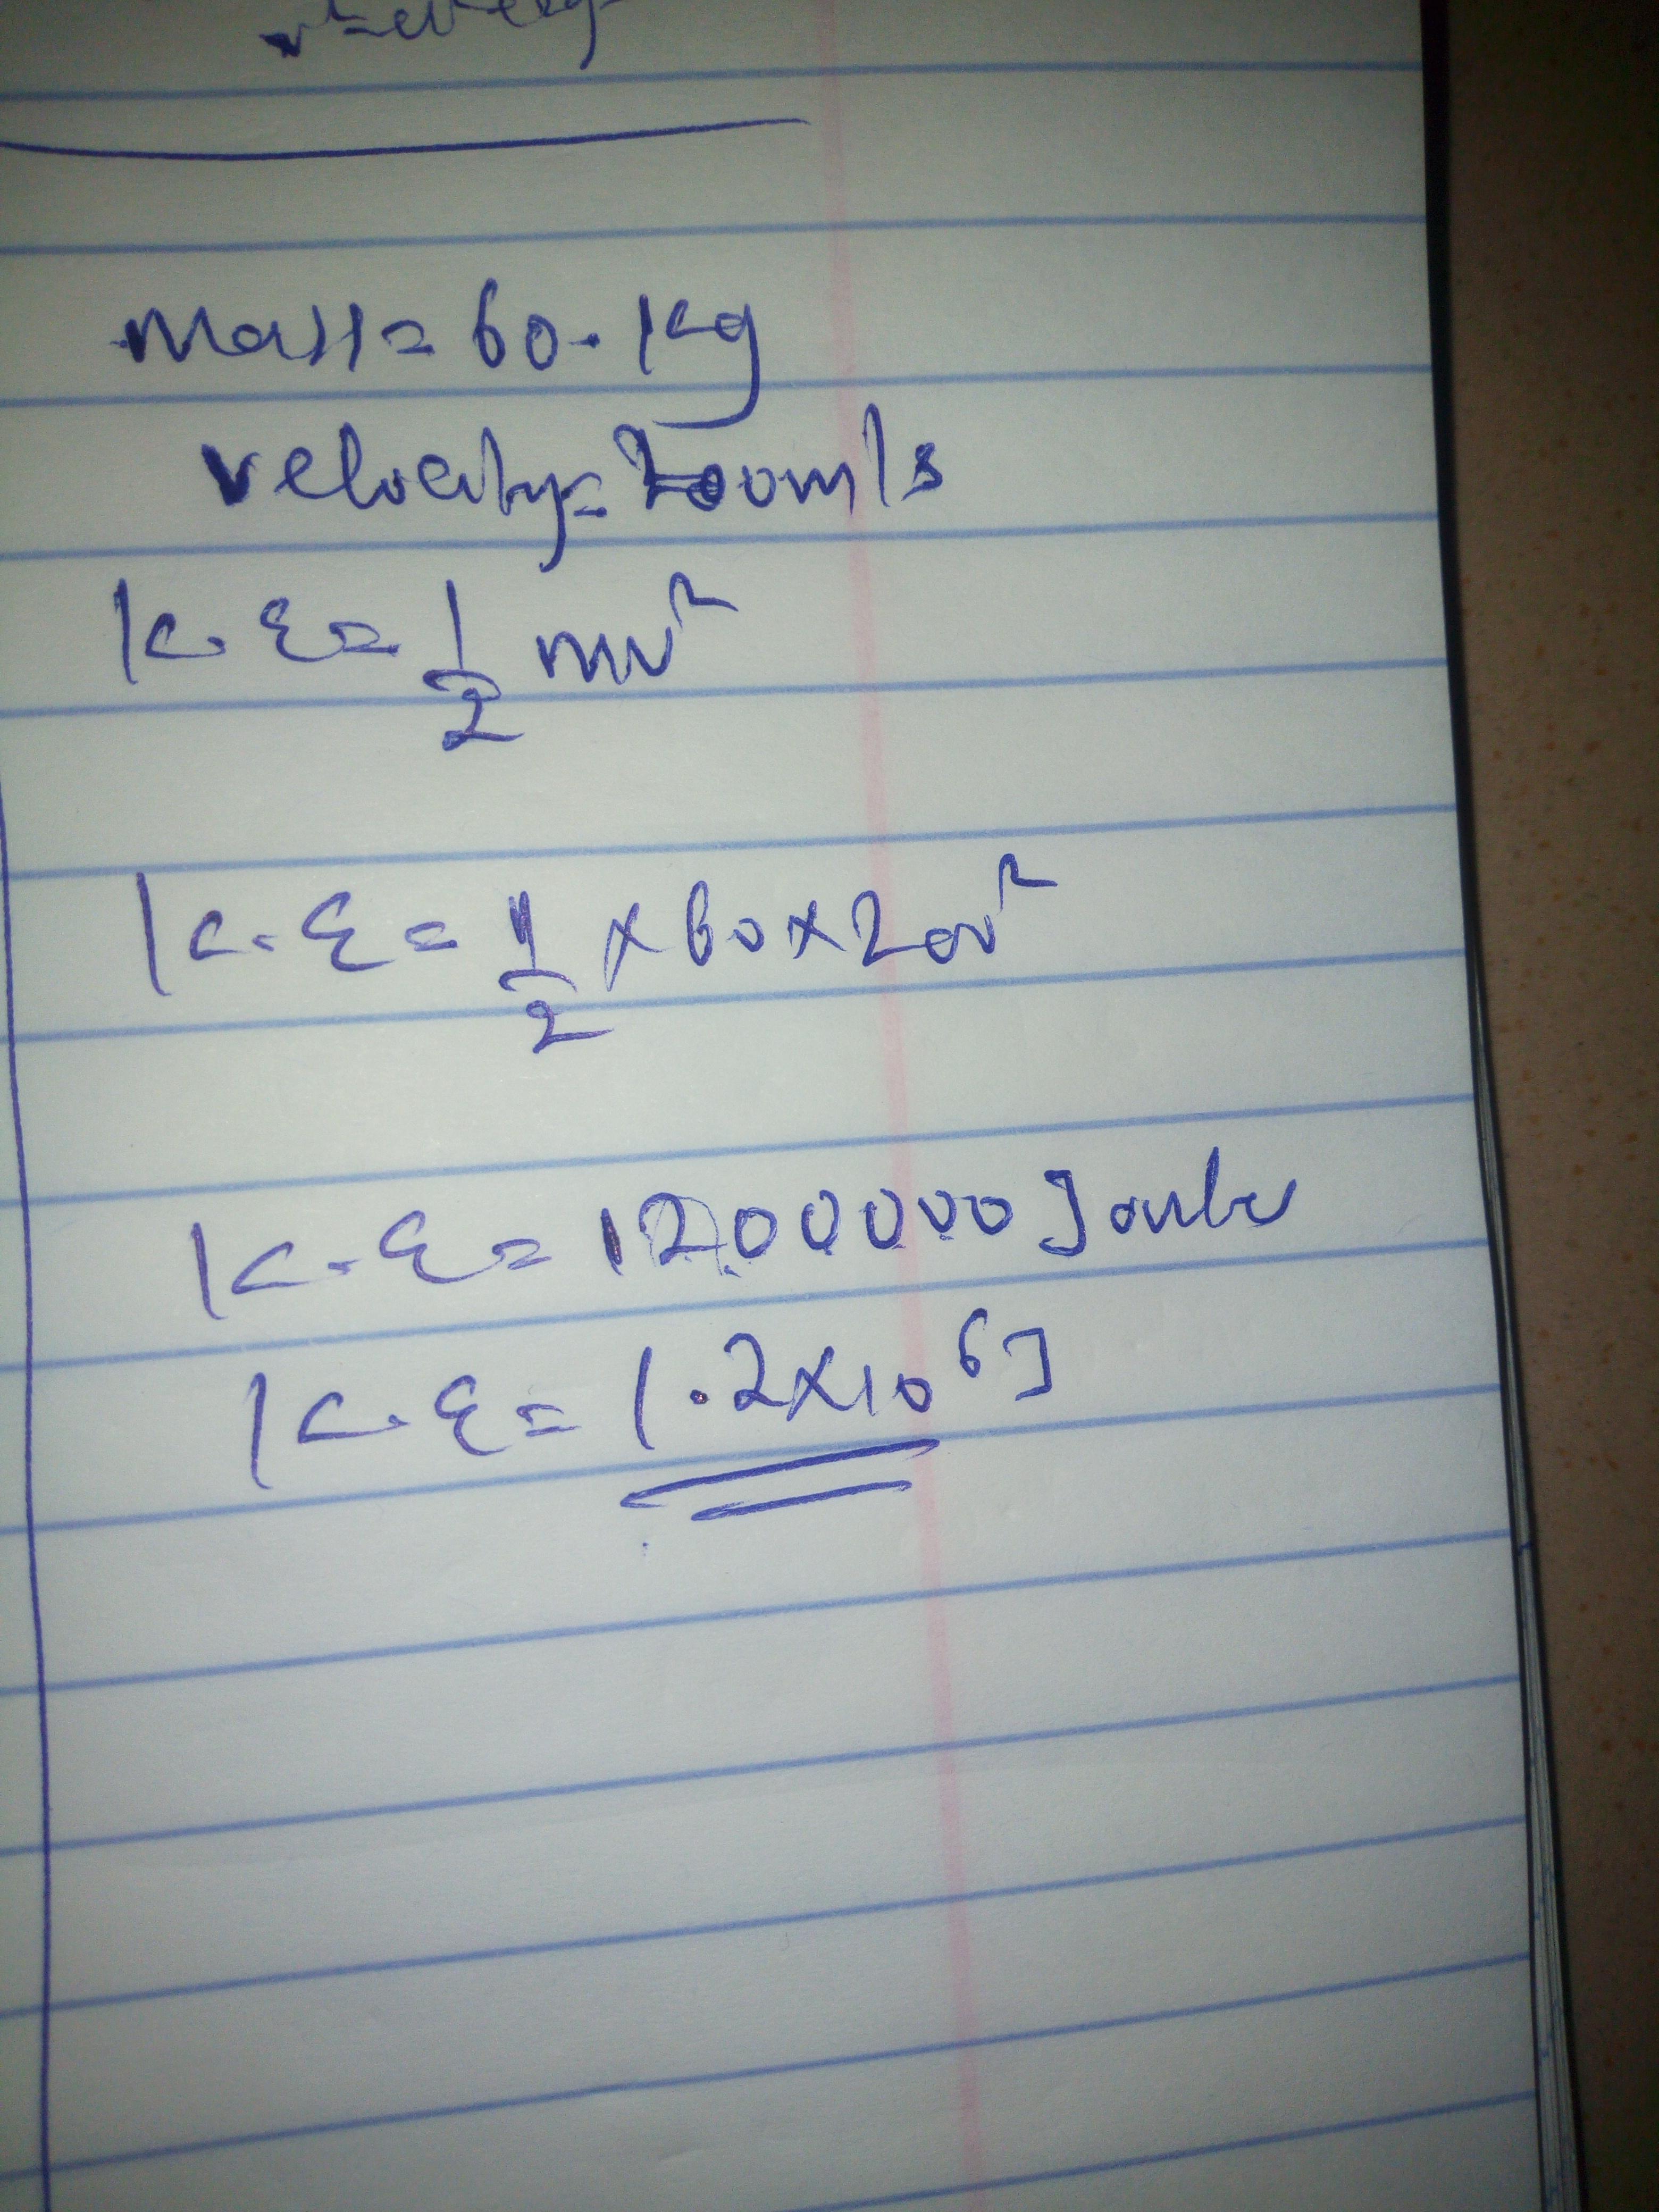 mass = 60. kg
velocity = 200m/s
K.E = 1/2 mv²
K.E = 1/2 × 60 × 200²
K.E = 1200000 Joule
K.E = 1.2×10⁶J